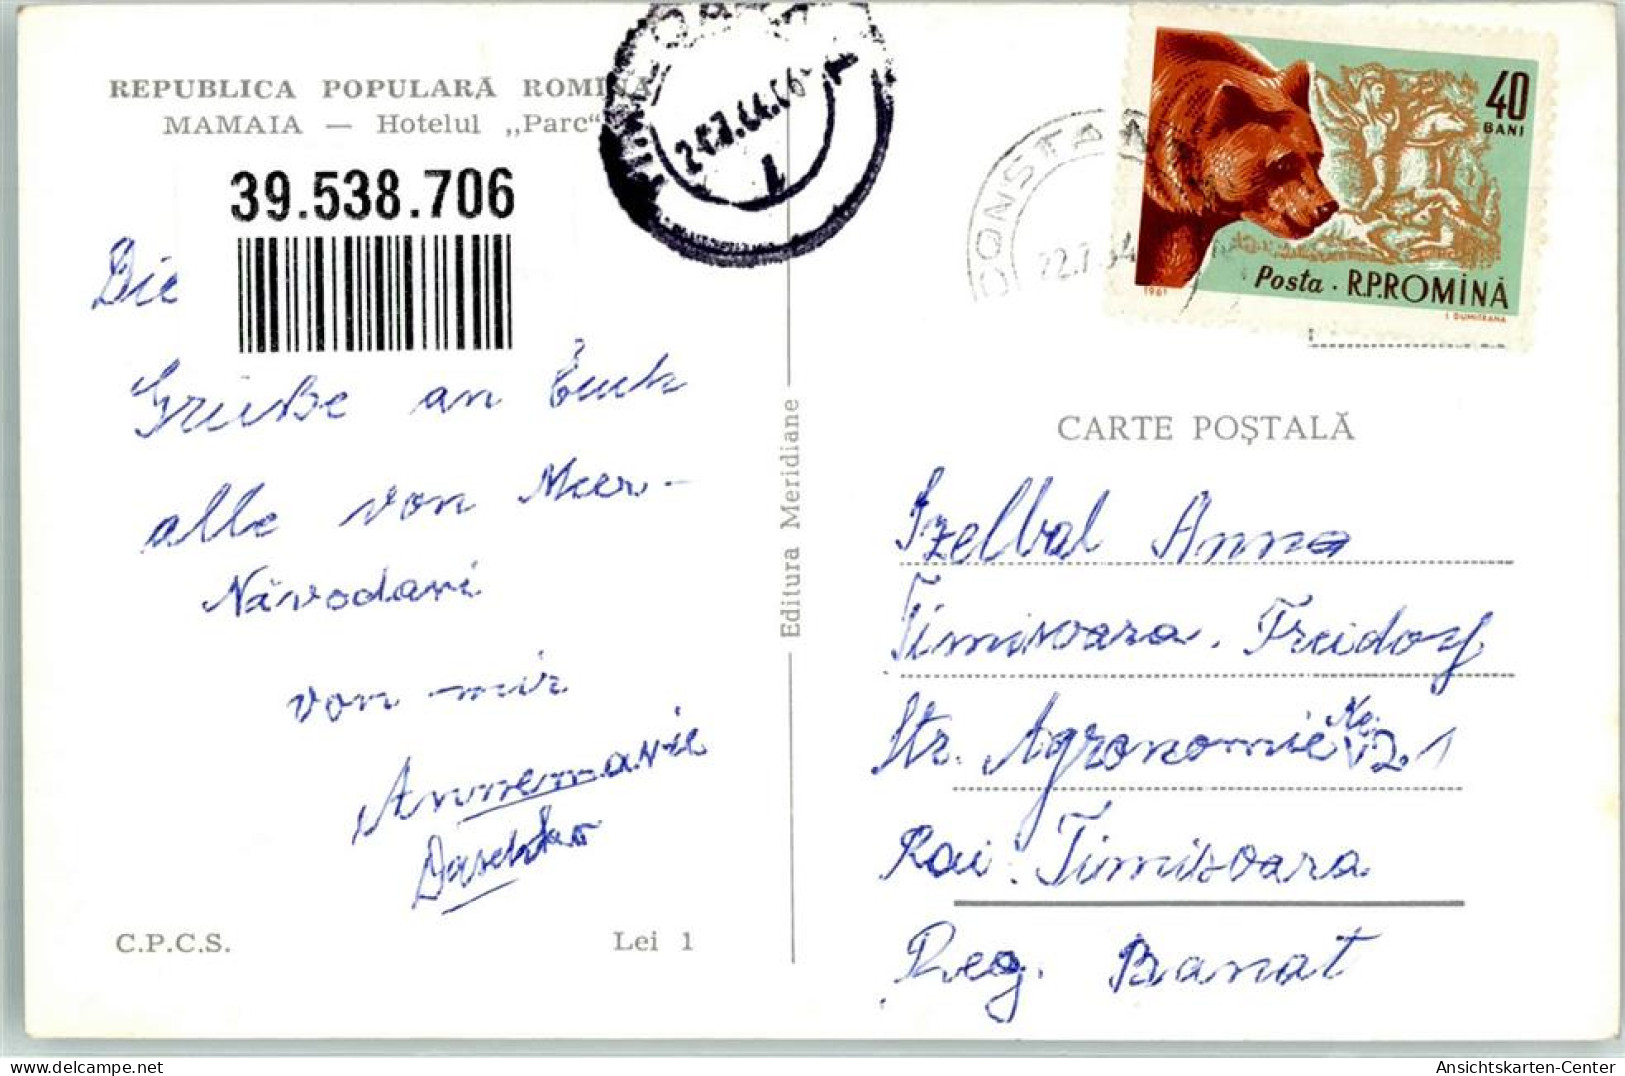 REPUBLICA POPULARĂ ROMÎNĂ
MAMAIA — Hotelul „Parc“
39.538.706
Die
Grüße an Euch
alle von Meer -
Năvodari
von mir
Annemarie
C.P.C.S.
Lei 1
Editura Meridiane
TIMIȘOARA
CONSTANȚA
22.7.64
40
BANI
Posta · R.P.ROMÎNĂ
1961
I. DUMITRANA
CARTE POȘTALĂ
Szelbal Anna
Timisoara. Freidorf
Str. Agronomie No. 21
Rai. Timisoara
Reg. Banat
Ansichtskarten-Center